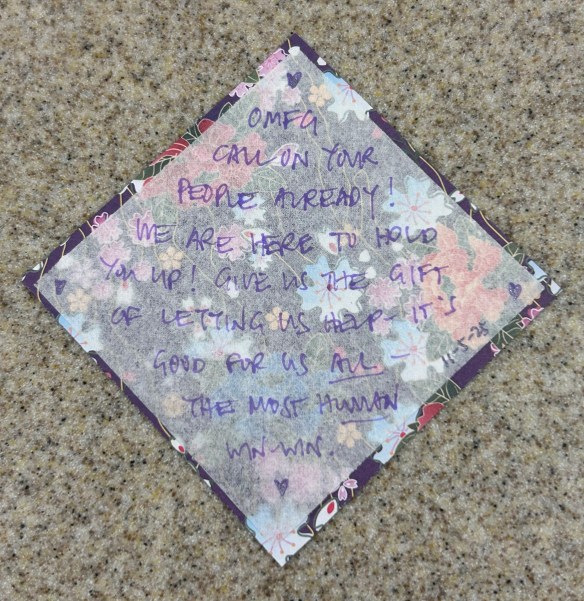 OMFG
CALL ON YOUR
PEOPLE ALREADY!
WE ARE HERE TO HOLD
YOU UP! GIVE US THE GIFT
OF LETTING US HELP - IT'S
GOOD FOR US ALL -
THE MOST HUMAN
WIN-WIN.
11-5-25